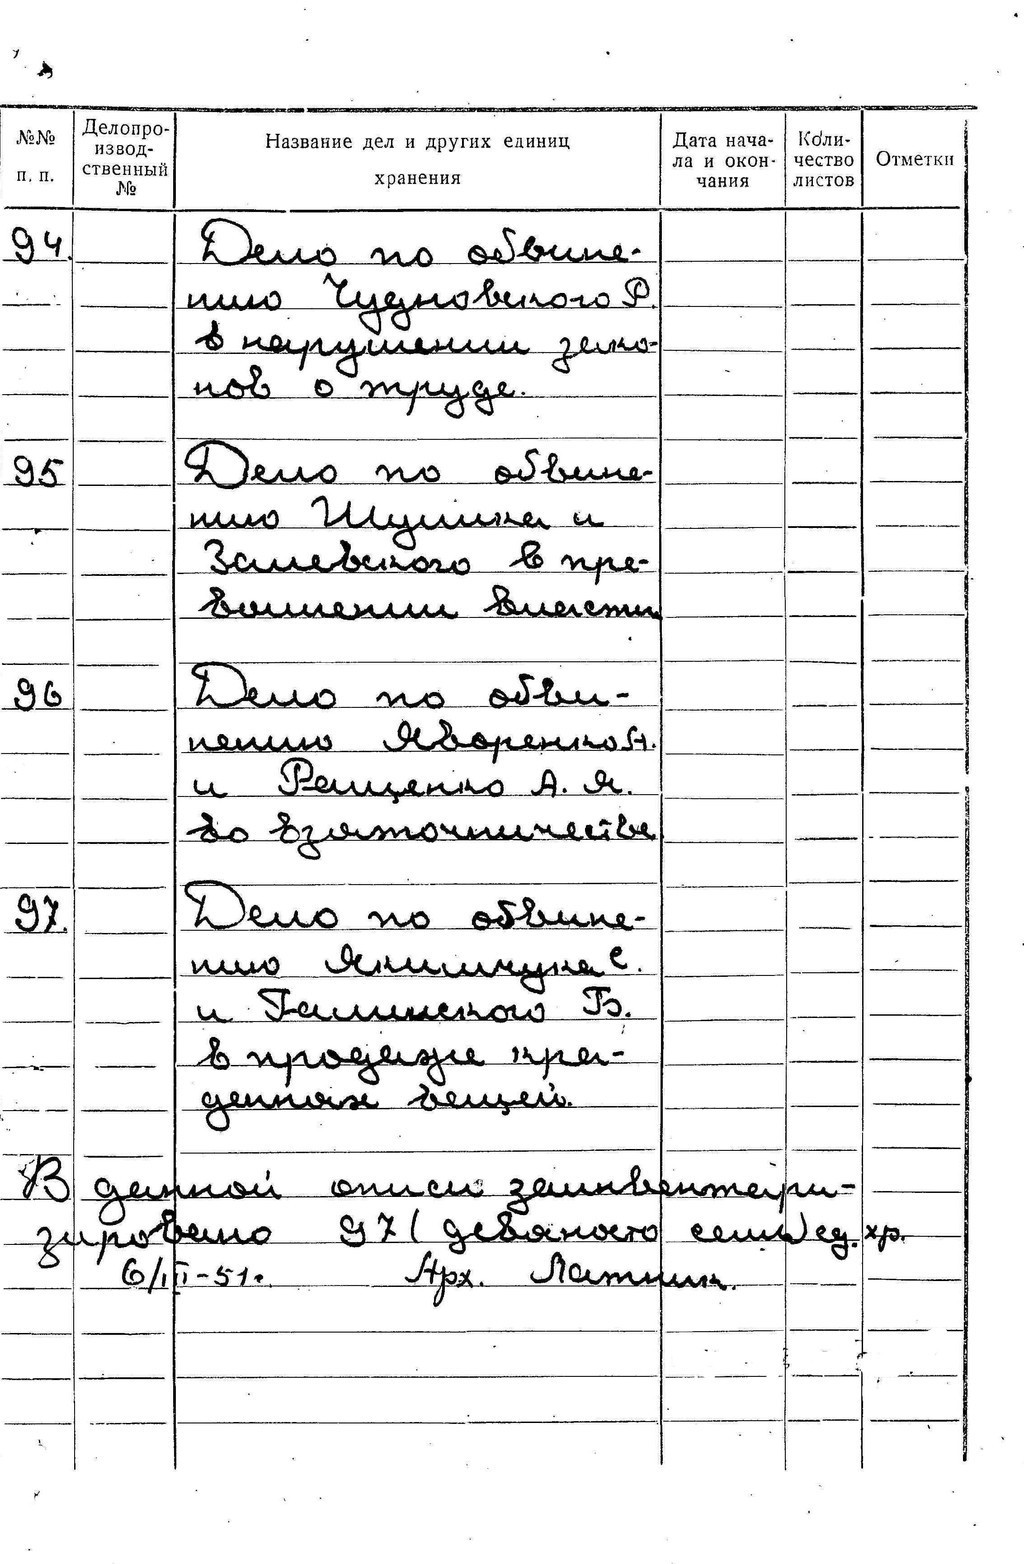 №№ п. п.
Делопроизвод-
ственный
№
Название дел и других единиц
хранения
Дата нача-
ла и окон-
чания
Коли-
чество
листов
Отметки
94. Дело по обвине-
нию Чудновского Р.
в нарушении зако-
нов о труде.
95 Дело по обвине-
нию Шумика и
Залевского в пре-
вышении власти
96 Дело по обви-
нению Яворенко А.
и Ращенко А. Я.
во взяточничестве
97. Дело по обвине-
нию Якимчука С.
и Галинского Б.
в продаже кра-
денных вещей.
В данной описи заинвентари-
зировано 97 (девяносто семь) ед. хр.
6/III-51г. Арх. Латник.